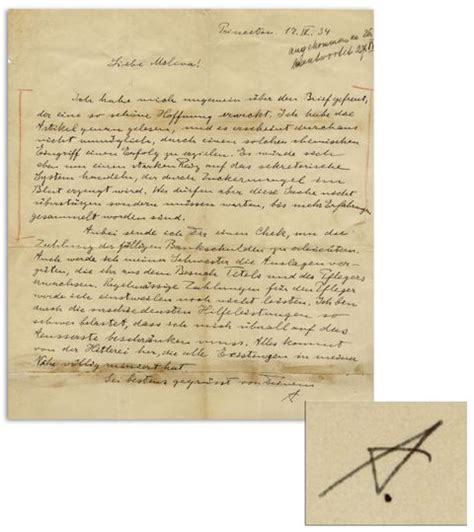 Princeton. 17. IX. 34
angekommen 26
beantwortet 27.IX
Liebe Mileva!
Ich habe mich ungemein über den Brief gefreut,
der eine so schöne Hoffnung erweckt. Ich habe die
Artikel genau gelesen, und es erscheint durchaus
nicht unmöglich, durch einen solchen chemischen
Eingriff einen Erfolg zu erzielen. Es würde sich
eben um einen starken Reiz auf das sekretorische
System handeln, der durch Zuckermangel im
Blut erzeugt wird. Wir dürfen aber diese Sache nicht
überstürzen sondern müssen warten, bis mehr Erfahrungen
gesammelt worden sind.
Anbei sende ich Dir einen Chek, um die
Zahlung der fälligen Bankschulden zu erleichtern.
Auch werde ich meiner Schwester die Auslagen ver-
güten, die ihr aus dem Besuche Tetels und des Pflegers
erwachsen. Regelmässige Zahlungen für den Pfleger
werde ich einstweilen noch nicht leisten. Ich bin
durch die verschiedensten Hilfeleistungen so
schwer belastet, dass ich mich überall auf das
Äusserste beschränken muss. Alles kommt
von der Hitlerei her, die alle Existenzen in meiner
Nähe völlig ruiniert hat
Sei bestens gegrüsst von Deinem
A.
A.